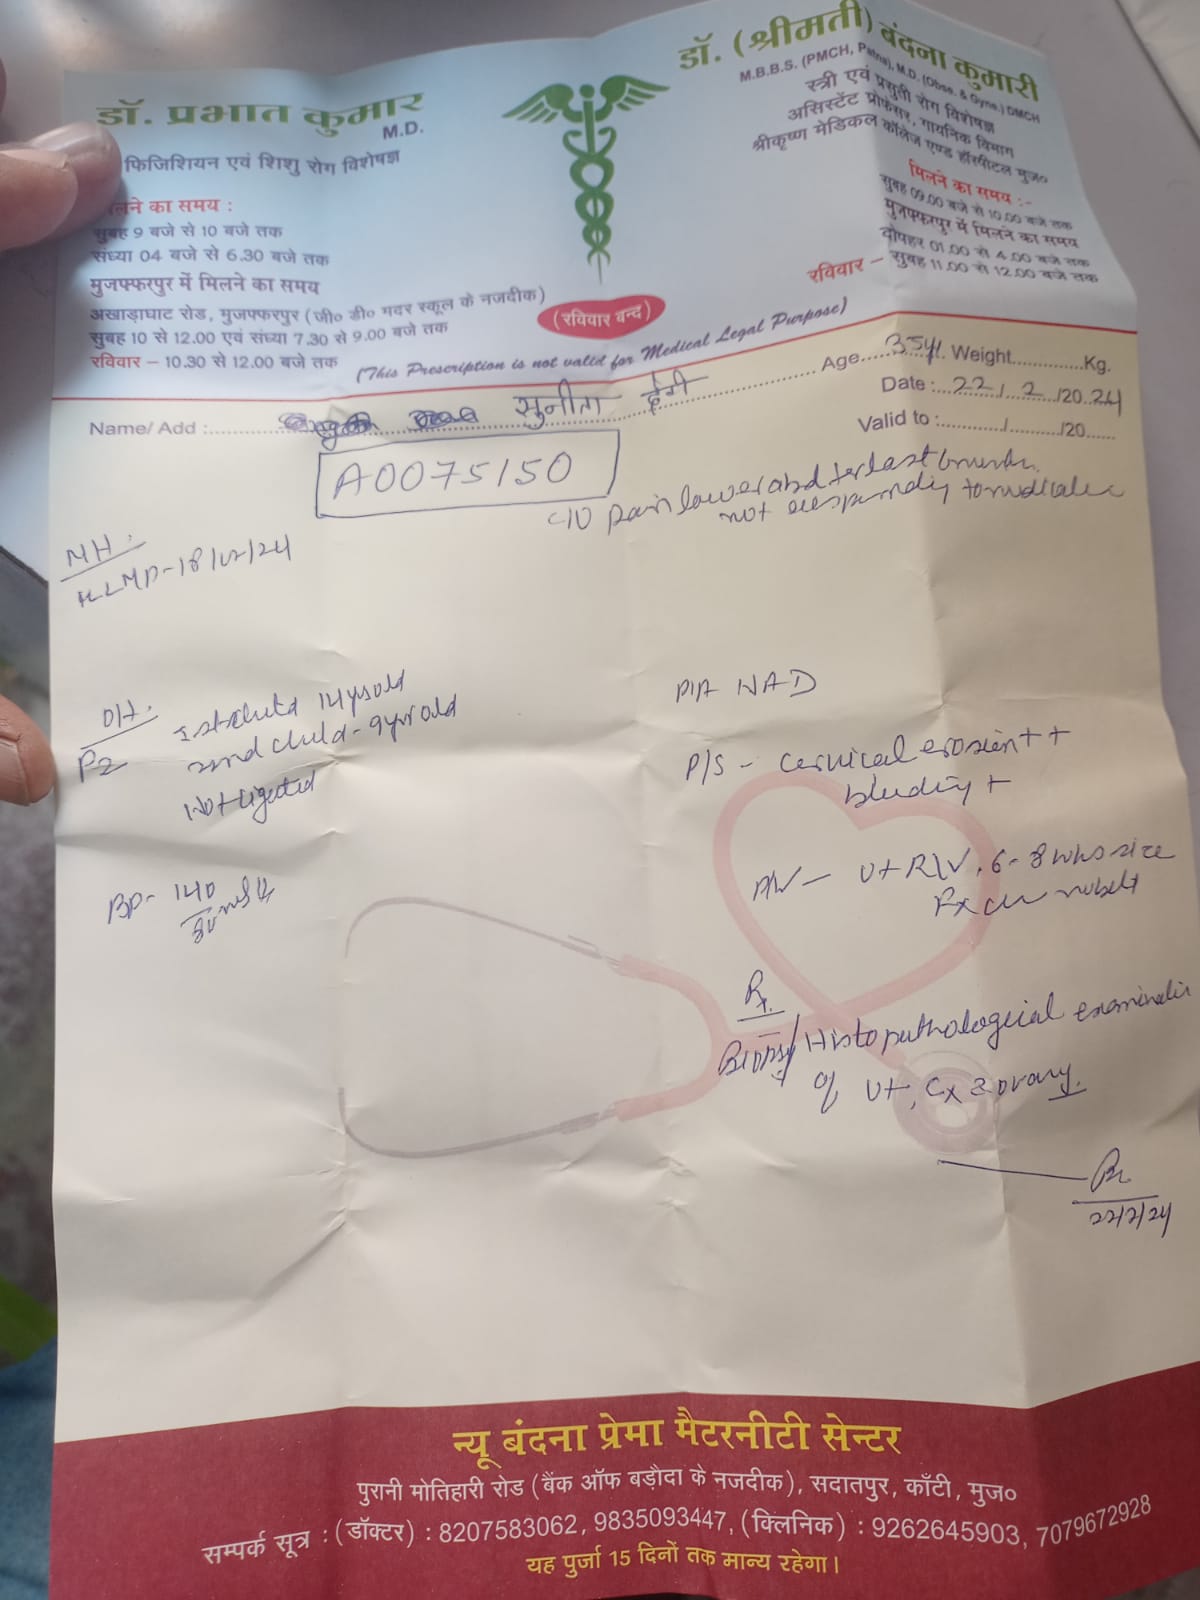 डॉ. प्रभात कुमार
M.D.
फिजिशियन एवं शिशु रोग विशेषज्ञ
मिलने का समय :
सुबह 9 बजे से 10 बजे तक
संध्या 04 बजे से 6.30 बजे तक
मुजफ्फरपुर में मिलने का समय
अखाड़ाघाट रोड, मुजफ्फरपुर (जी० डी० मदर स्कूल के नजदीक)
सुबह 10 से 12.00 एवं संध्या 7.30 से 9.00 बजे तक
रविवार – 10.30 से 12.00 बजे तक
डॉ. (श्रीमती) बंदना कुमारी
M.B.B.S. (PMCH, Patna), M.D. (Obse. & Gyne.) DMCH
स्त्री एवं प्रसुती रोग विशेषज्ञ
असिस्टेंट प्रोफेसर, गायनिक विभाग
श्रीकृष्ण मेडिकल कॉलेज एण्ड हॉस्पीटल मुज०
मिलने का समय :-
सुबह 09.00 बजे से 10.00 बजे तक
मुजफ्फरपुर में मिलने का समय
दोपहर 01.00 से 4.00 बजे तक
रविवार – सुबह 11.00 से 12.00 बजे तक
(रविवार बन्द)
(This Prescription is not valid for Medical Legal Purpose)
Name/ Add : सुनीता देवी Age 35y Weight Kg.
Date : 22/2/2024
Valid to : / /20
A0075150
C/O pain lower abd for last
not responding to
MH:
LMP-18/02/24
OH:
P2
1st child 14yrs old
2nd child - 9yrs old
Not ligated
BP- 140
P/A NAD
P/S - Cervical erosion ++
bleeding +
P/V - Ut R/V, 6-8 wks size
Fx
Rx
Biopsy/Histopathological examination
of Ut, Cx & ovary.
22/2/24
न्यू बंदना प्रेमा मैटरनीटी सेन्टर
पुरानी मोतिहारी रोड (बैंक ऑफ बड़ौदा के नजदीक), सदातपुर, काँटी, मुज०
सम्पर्क सूत्र : (डॉक्टर) : 8207583062, 9835093447, (क्लिनिक) : 9262645903, 7079672928
यह पुर्जा 15 दिनों तक मान्य रहेगा।